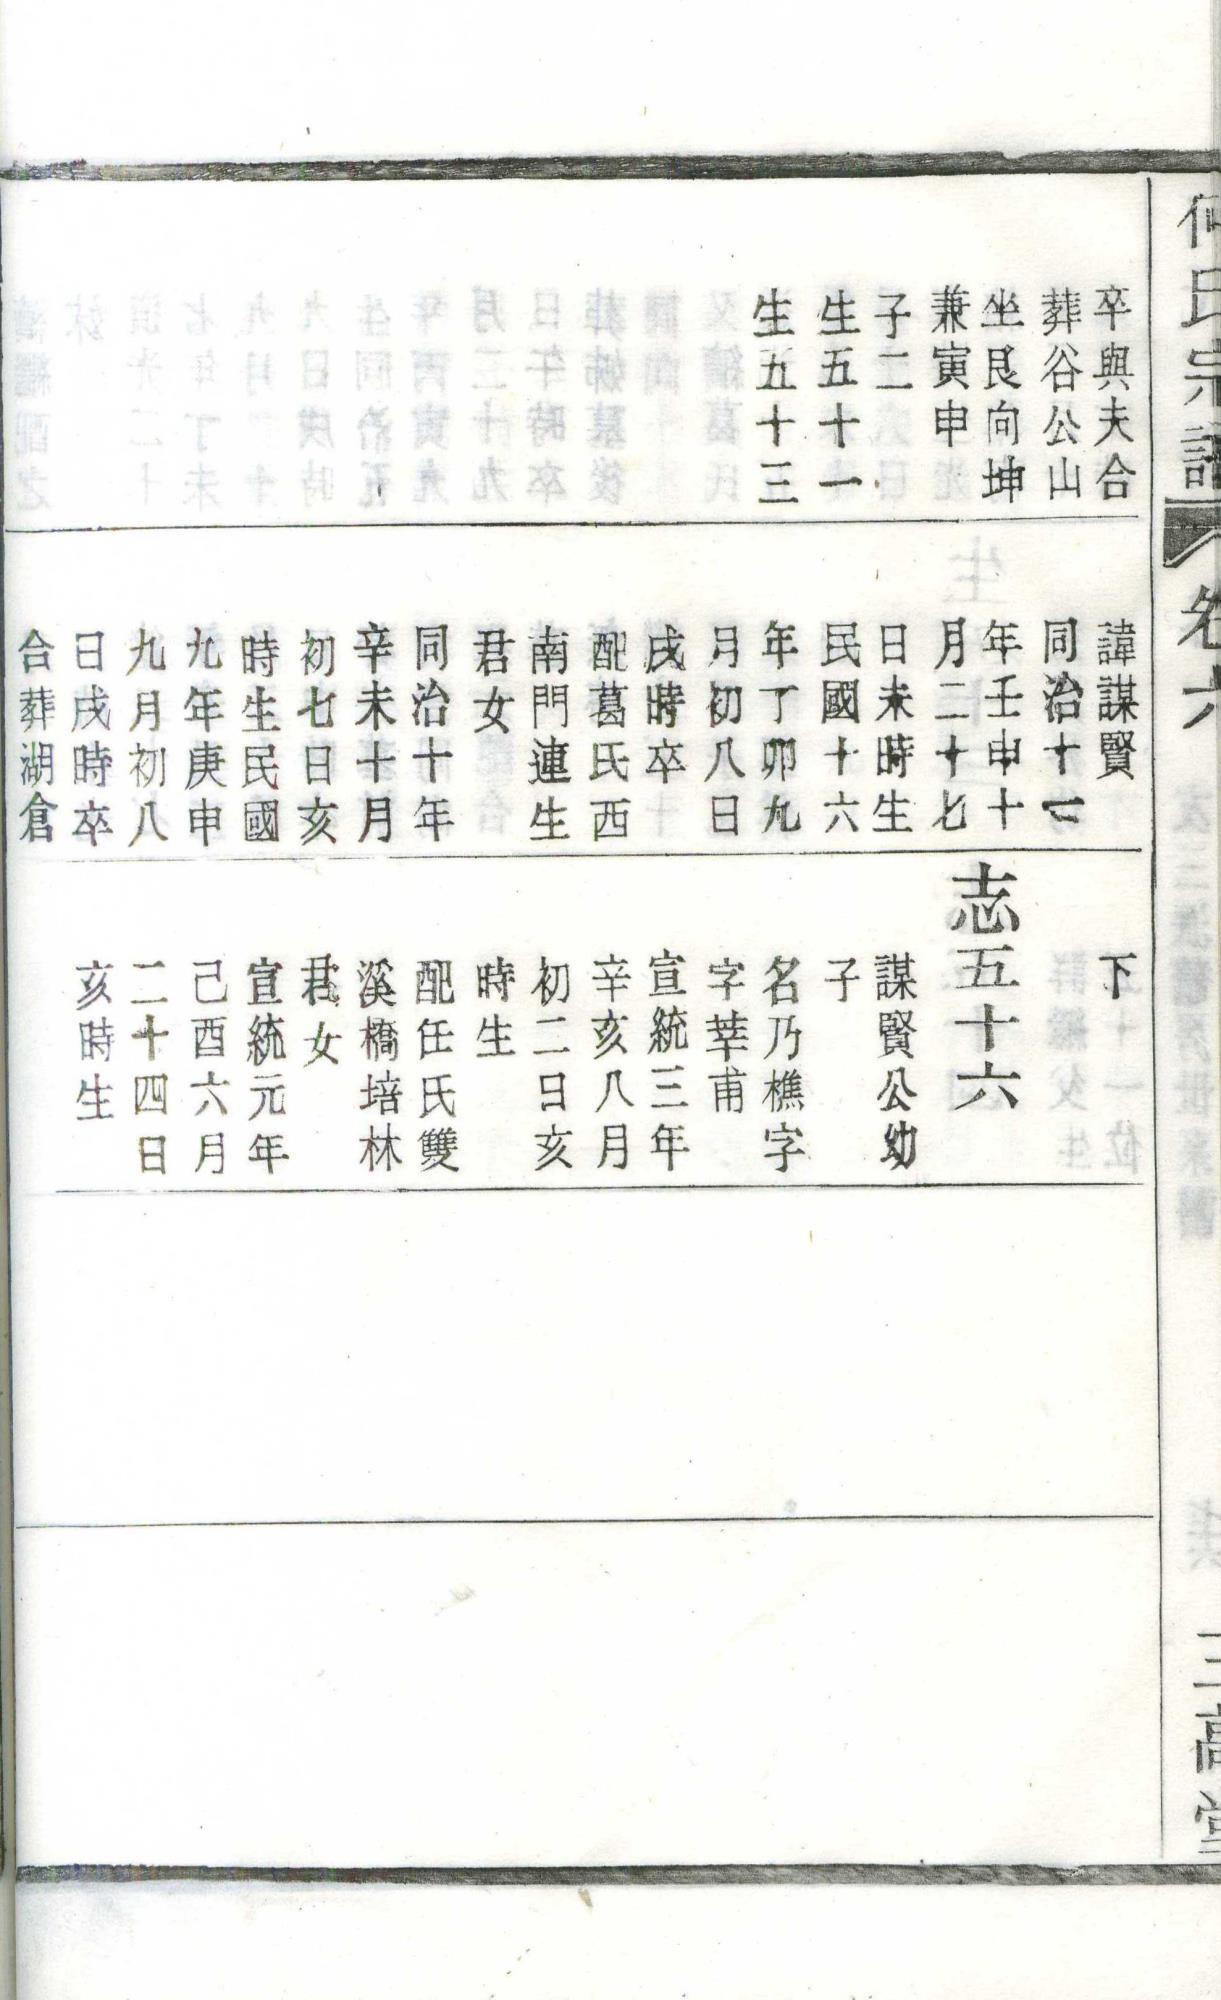 何氏宗譜
卷六
三高堂
卒與夫合
葬谷公山
坐艮向坤
兼寅申
子二
生五十一
生五十三
諱謀賢
同治十一
年壬申十
月二十七
日未時生
民國十六
年丁卯九
月初八日
戌時卒
配葛氏西
南門連生
君女
同治十年
辛未十月
初七日亥
時生民國
九年庚申
九月初八
日戌時卒
合葬湖倉
下
志五十六
謀賢公幼
子
名乃樵字
字莘甫
宣統三年
辛亥八月
初二日亥
時生
配任氏雙
溪橋培林
君女
宣統元年
己酉六月
二十四日
亥時生